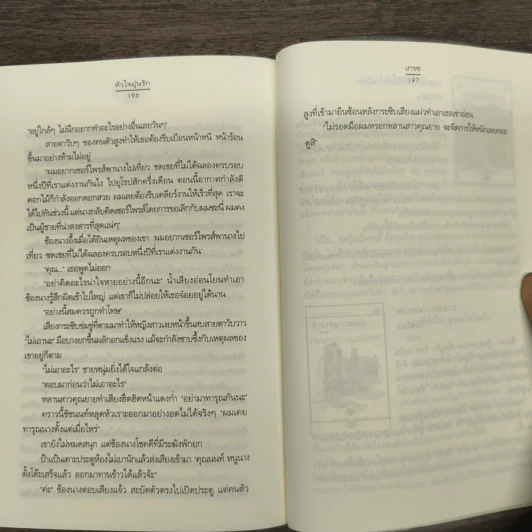 หัวใจอุ่นรัก
196
"อยู่ใกล้ๆ ไม่นึกอยากทำอะไรอย่างอื่นเลยวันๆ"
สายตาวับๆ ของคนตัวสูงทำให้เธอต้องรีบเบือนหน้าหนี หน้าร้อน
ขึ้นมาอย่างห้ามไม่อยู่
"ผมอยากเซอร์ไพรส์พานางไปเที่ยว ชดเชยที่ไม่ได้ฉลองครบรอบ
หนึ่งปีที่เราแต่งงานกันไง ไปยุโรปสักครึ่งเดือน ตอนนี้อากาศกำลังดี
ดอกไม้ก็กำลังออกดอกสวย ผมเลยต้องรีบเคลียร์งานให้เร็วที่สุด เราจะ
ได้ไปทันช่วงนี้ แต่นางกลับคิดเซอร์ไพรส์โดยการขอเลิกกับผมซะนี่ ผมคง
เป็นผู้ชายที่น่าสงสารที่สุดแน่ๆ"
ช้องนางอึ้งเมื่อได้ยินเหตุผลของเขา ผมอยากเซอร์ไพรส์พานางไป
เที่ยว ชดเชยที่ไม่ได้ฉลองครบรอบหนึ่งปีที่เราแต่งงานกัน
"คุณ..." เธอพูดไม่ออก
"อย่าคิดอะไรน่าใจหายอย่างนี้อีกนะ" น้ำเสียงอ่อนโยนทำเอา
ช้องนางรู้สึกผิดเข้าไปใหญ่ แต่เขาก็ไม่ปล่อยให้เธอจ๋อยอยู่ได้นาน
"อย่างนี้สมควรถูกทำโทษ"
เสียงกระซิบข่มขู่ที่ตามมาทำให้หญิงสาวเงยหน้าขึ้นสบสายตาวับวาว
"ไม่เอานะ" มือบางยกขึ้นผลักอกแข็งแรง แม้จะกำลังซาบซึ้งกับเหตุผลของ
เขาอยู่ก็ตาม
"ไม่เอาอะไร" ชายหนุ่มยิ่งได้ใจแกล้งต่อ
"ตอบมาก่อนว่าไม่เอาอะไร"
หลานสาวคุณยายทำเสียงฮึดฮัดหน้าแดงก่ำ "อย่ามาทารุณกันนะ"
คราวนี้ชิษนนท์หลุดหัวเราะออกมาอย่างอดไม่ได้จริงๆ "ผมเคย
ทารุณนางตั้งแต่เมื่อไหร่"
เขายังไม่หมดสนุก แต่ช้องนางโชคดีที่มีระฆังพักยก
ป้าแป้นเคาะประตูห้องไม่เบานักแล้วส่งเสียงเข้ามา "คุณนนท์ หนูนาง
ตั้งโต๊ะเสร็จแล้ว ออกมาทานข้าวได้แล้วจ้ะ"
"ค่ะ" ช้องนางตอบเสียงแจ้ว สะบัดตัวตรงไปเปิดประตู แต่คนตัว
เภรช
197
สูงที่เข้ามายืนซ้อนหลังกระซิบเสียงแผ่วทำเอาเธอเข่าอ่อน
"ไม่รอดมือผมหรอกหลานสาวคุณยาย จะจัดการให้หนักเลยคอย
ดูสิ"